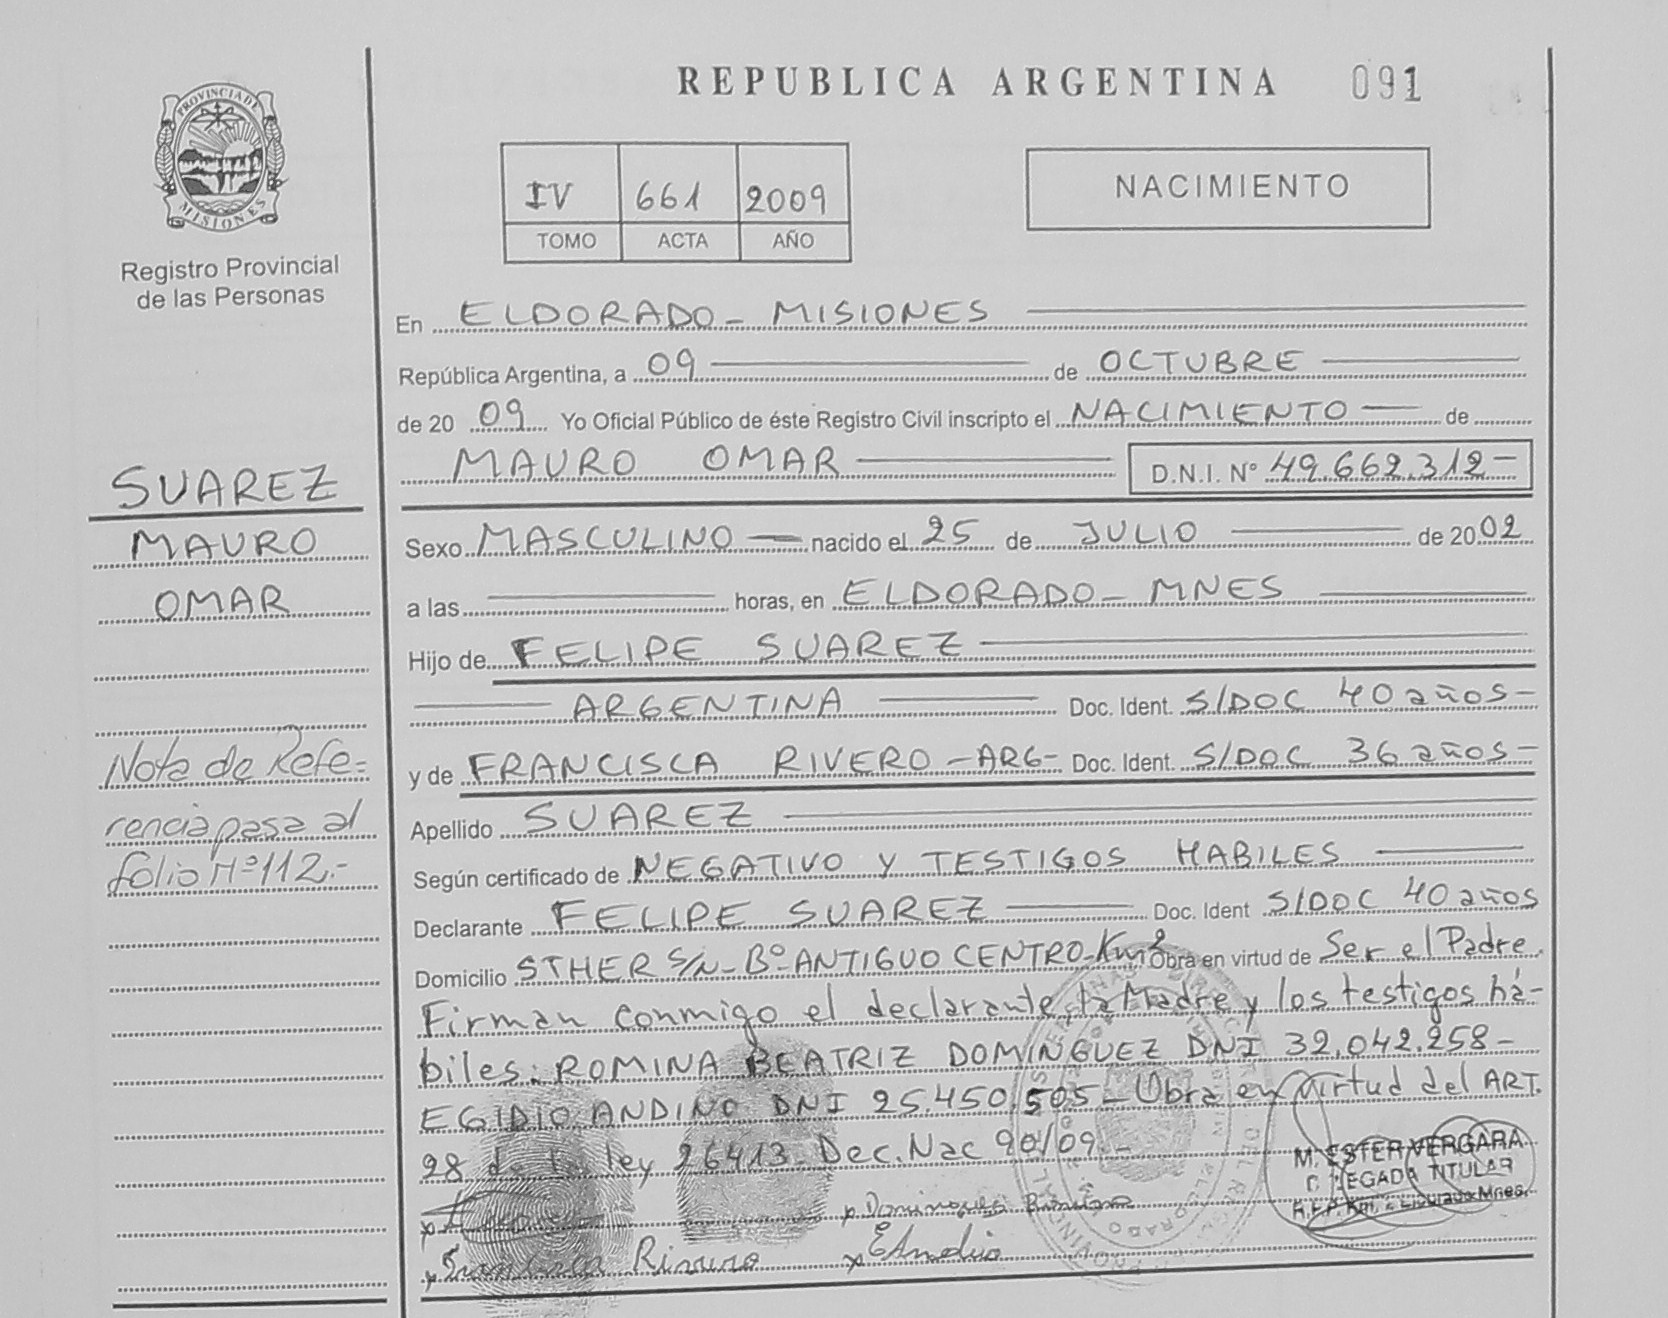 REPUBLICA ARGENTINA 091
PROVINCIA DE
MISIONES
Registro Provincial
de las Personas
IV 661 2009
TOMO ACTA AÑO
NACIMIENTO
En ELDORADO - MISIONES
República Argentina, a 09 de OCTUBRE
de 20 09 Yo Oficial Público de éste Registro Civil inscripto el NACIMIENTO de
MAURO OMAR D.N.I. Nº 49.662.312-
SUAREZ
MAURO
OMAR
Nota de Refe=
rencia pasa al
folio Nº 112.-
Sexo MASCULINO nacido el 25 de JULIO de 20 02
a las horas, en ELDORADO - MNES
Hijo de FELIPE SUAREZ
ARGENTINA Doc. Ident. S/DOC 40 años-
y de FRANCISCA RIVERO - ARG- Doc. Ident. S/DOC 36 años-
Apellido SUAREZ
Según certificado de NEGATIVO Y TESTIGOS HABILES
Declarante FELIPE SUAREZ Doc. Ident S/DOC 40 años
Domicilio STHER S/N - Bº ANTIGUO CENTRO - Km 2 Obra en virtud de Ser el Padre.
Firman conmigo el declarante, la Madre y los testigos há-
biles: ROMINA BEATRIZ DOMINGUEZ DNI 32.042.258-
EGIDIO ANDINO DNI 25.450.505 - Obra en virtud del ART.
98 de la ley 26413. Dec. Nac 90/09.-
M. ESTER VERGARA
DELEGADA TITULAR
Rivero